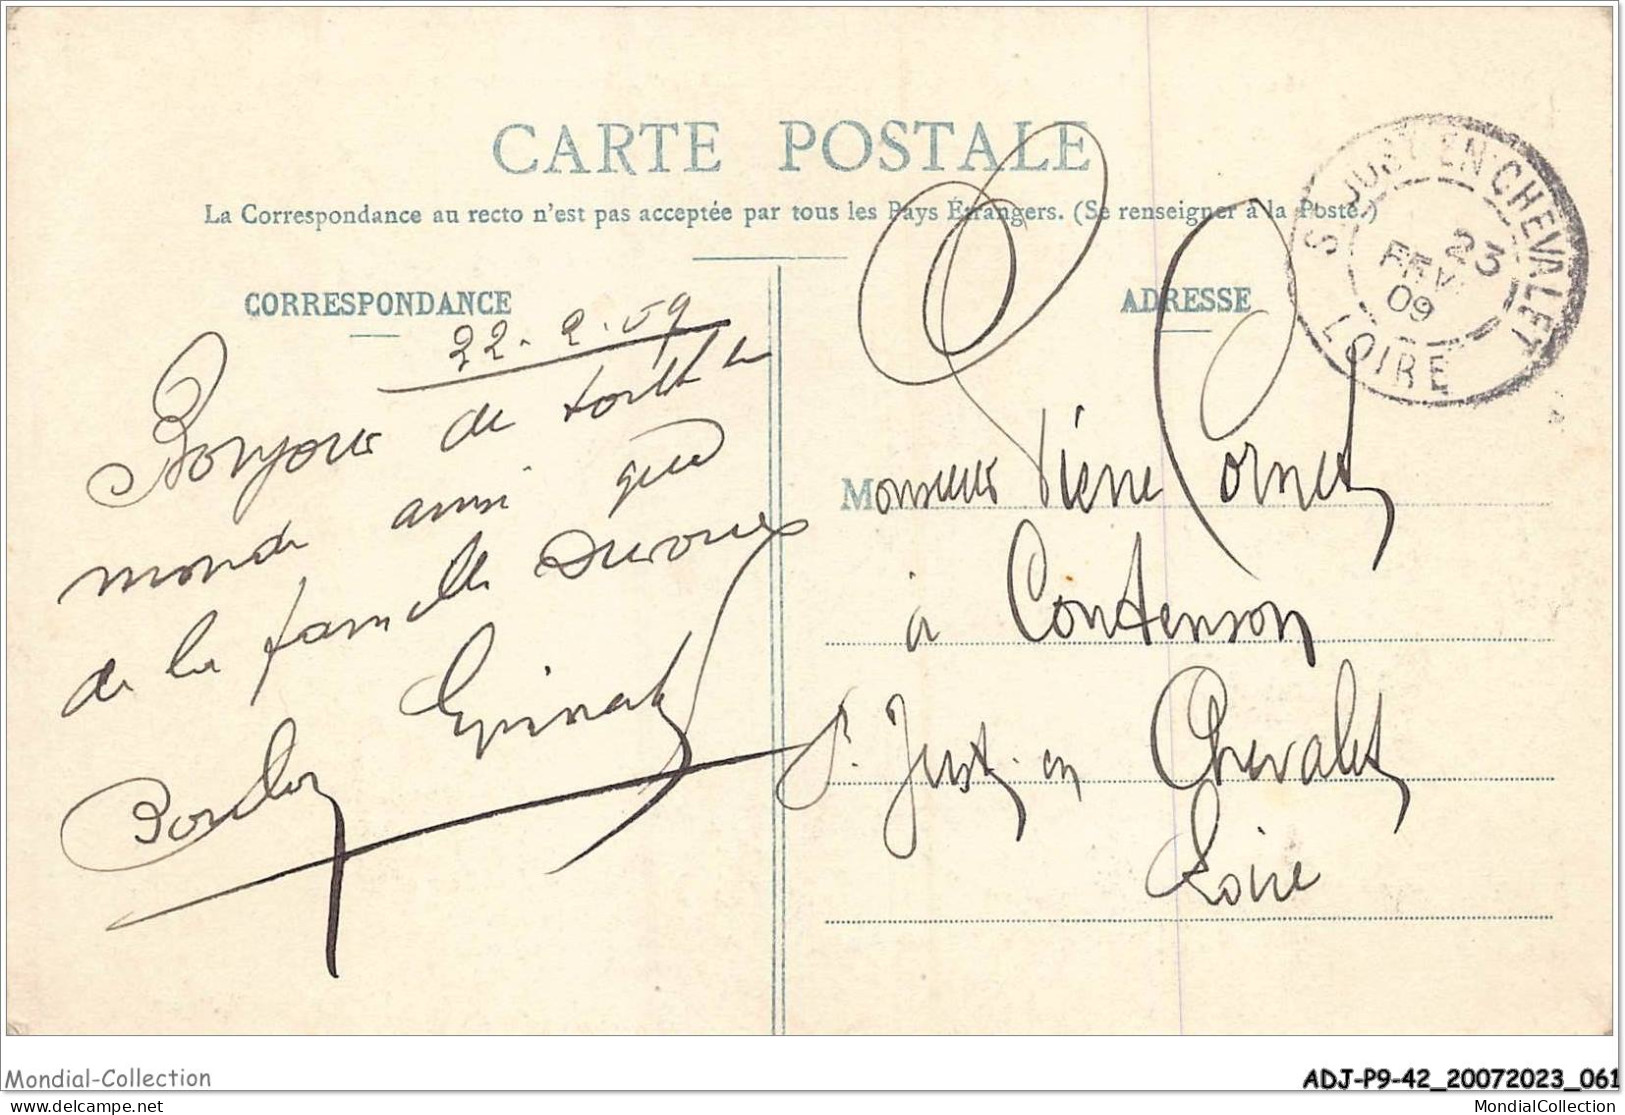 CARTE POSTALE
La Correspondance au recto n'est pas acceptée par tous les Pays Étrangers. (Se renseigner à la Poste.)
CORRESPONDANCE
22.2.09
Bonjour de tout le
monde ainsi que
de la famille
Epinat
ADRESSE
Monsieur Pierre Cornet
à Contenson
St. Just. en Chevalet
Loire
ST JUST EN CHEVALET
23
FEVR
09
LOIRE
Mondial-Collection
ADJ-P9-42_20072023_061
delcampe.net
MondialCollection